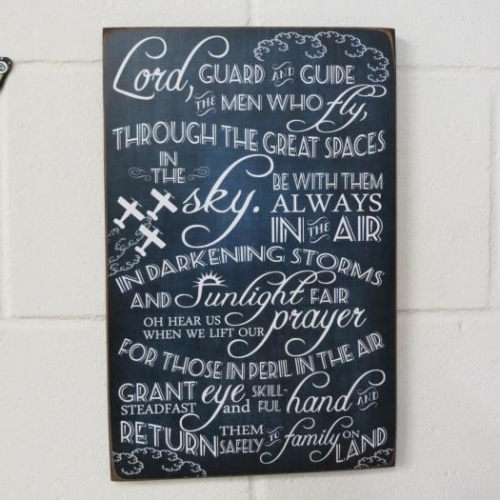 Lord, GUARD AND GUIDE
THE MEN WHO fly,
THROUGH THE GREAT SPACES
IN THE sky.
BE WITH THEM
ALWAYS
IN THE AIR
IN DARKENING STORMS
AND Sunlight FAIR
OH HEAR US
WHEN WE LIFT OUR prayer
FOR THOSE IN PERIL IN THE AIR
GRANT
STEADFAST eye and SKILL-
FUL hand AND
RETURN THEM
SAFELY TO family ON
LAND